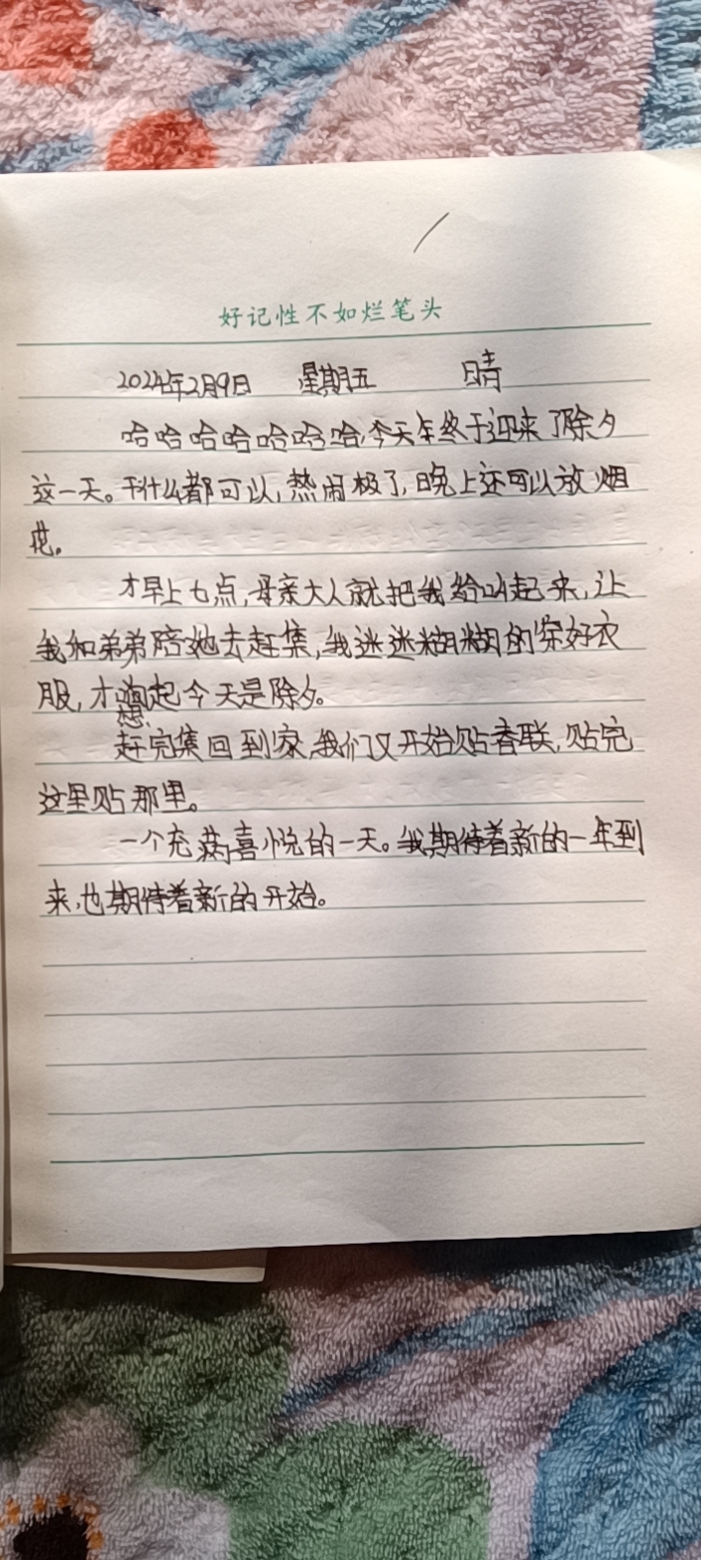 好记性不如烂笔头
2024年2月9日 星期五 晴
哈哈哈哈哈哈哈,今天年终于迎来了除夕
这一天。干什么都可以,热闹极了,晚上还可以放烟
花。
才早上七点,母亲大人就把我给叫起来,让
我和弟弟陪她去赶集,我迷迷糊糊的穿好衣
服,才想起今天是除夕。
赶完集回到家,我们又开始贴春联,贴完
这里贴那里。
一个充满喜悦的一天。我期待着新的一年到
来,也期待着新的开始。